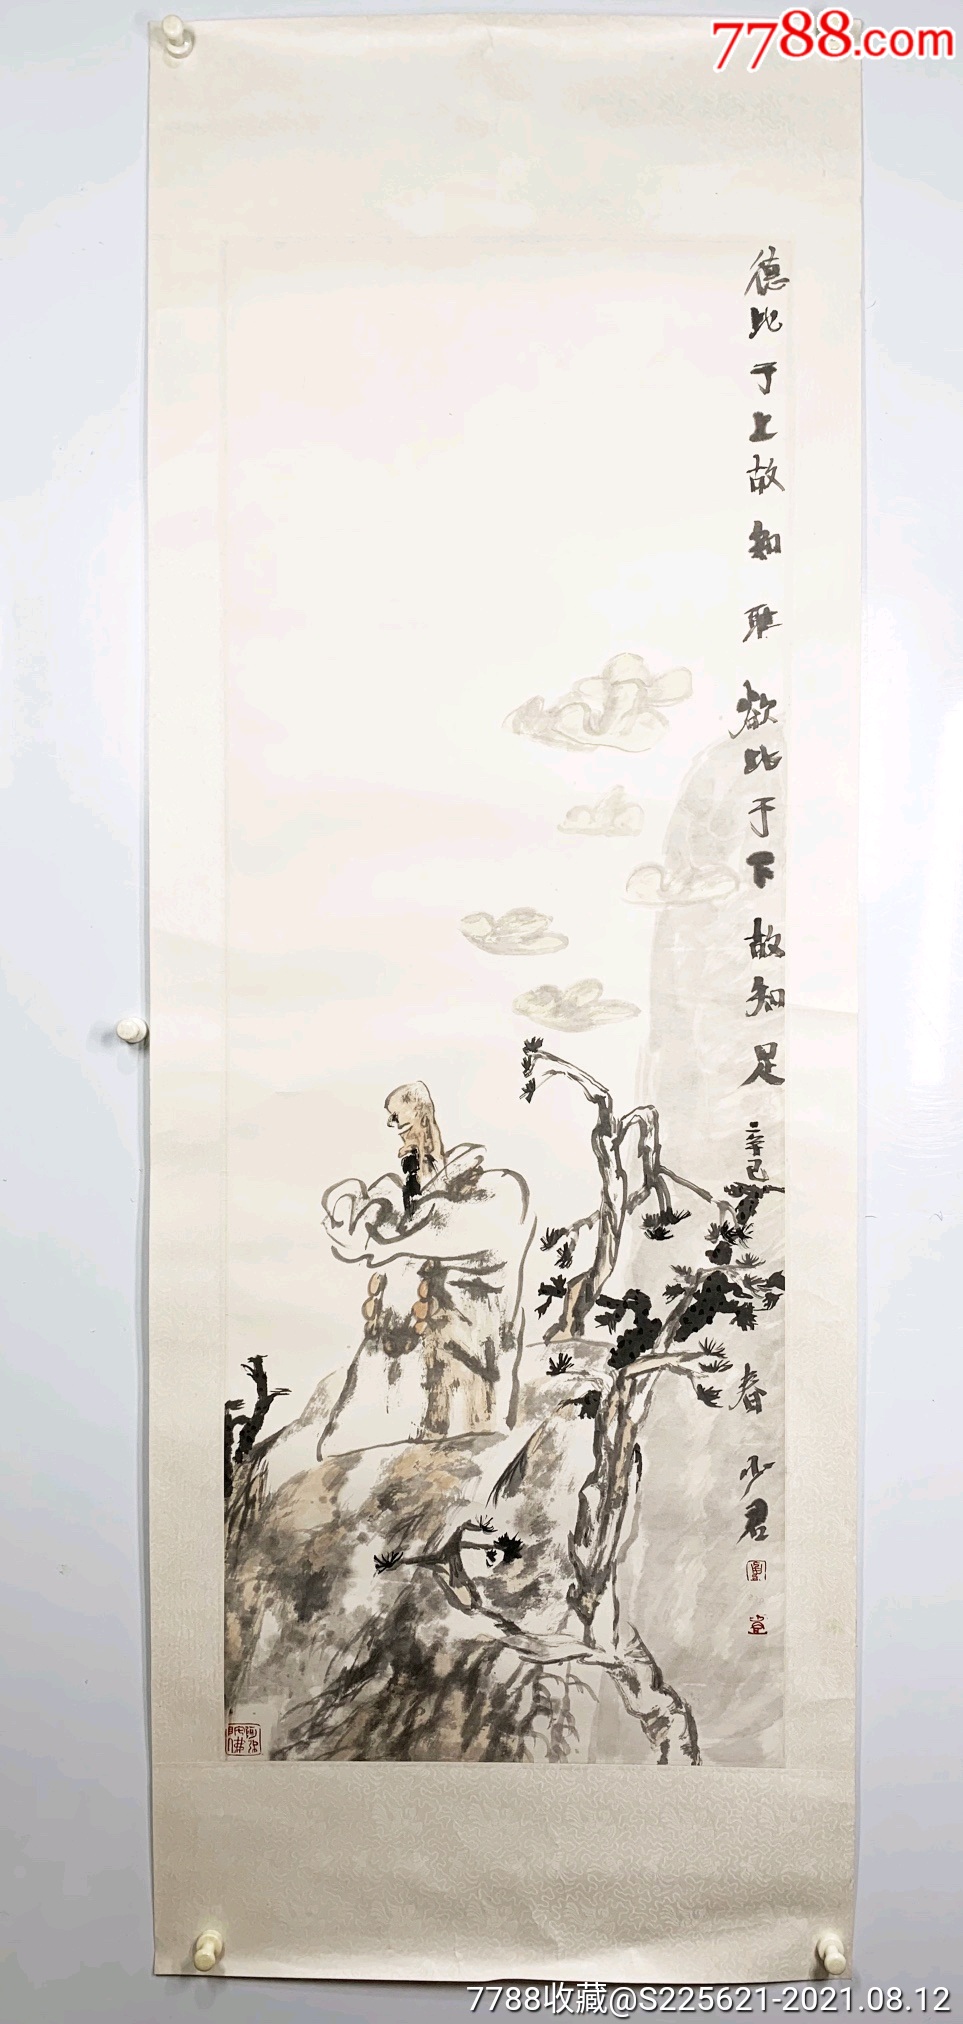 7788.com
德比于上故知耻欲比于下故知足
辛巳春少君
7788收藏@S225621-2021.08.12